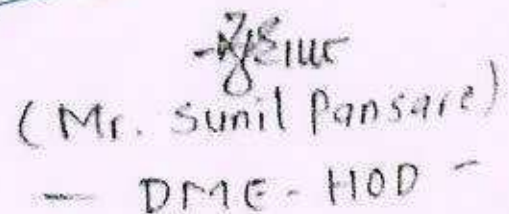 (Mr. Sunil Pansare)
— DME - HOD -